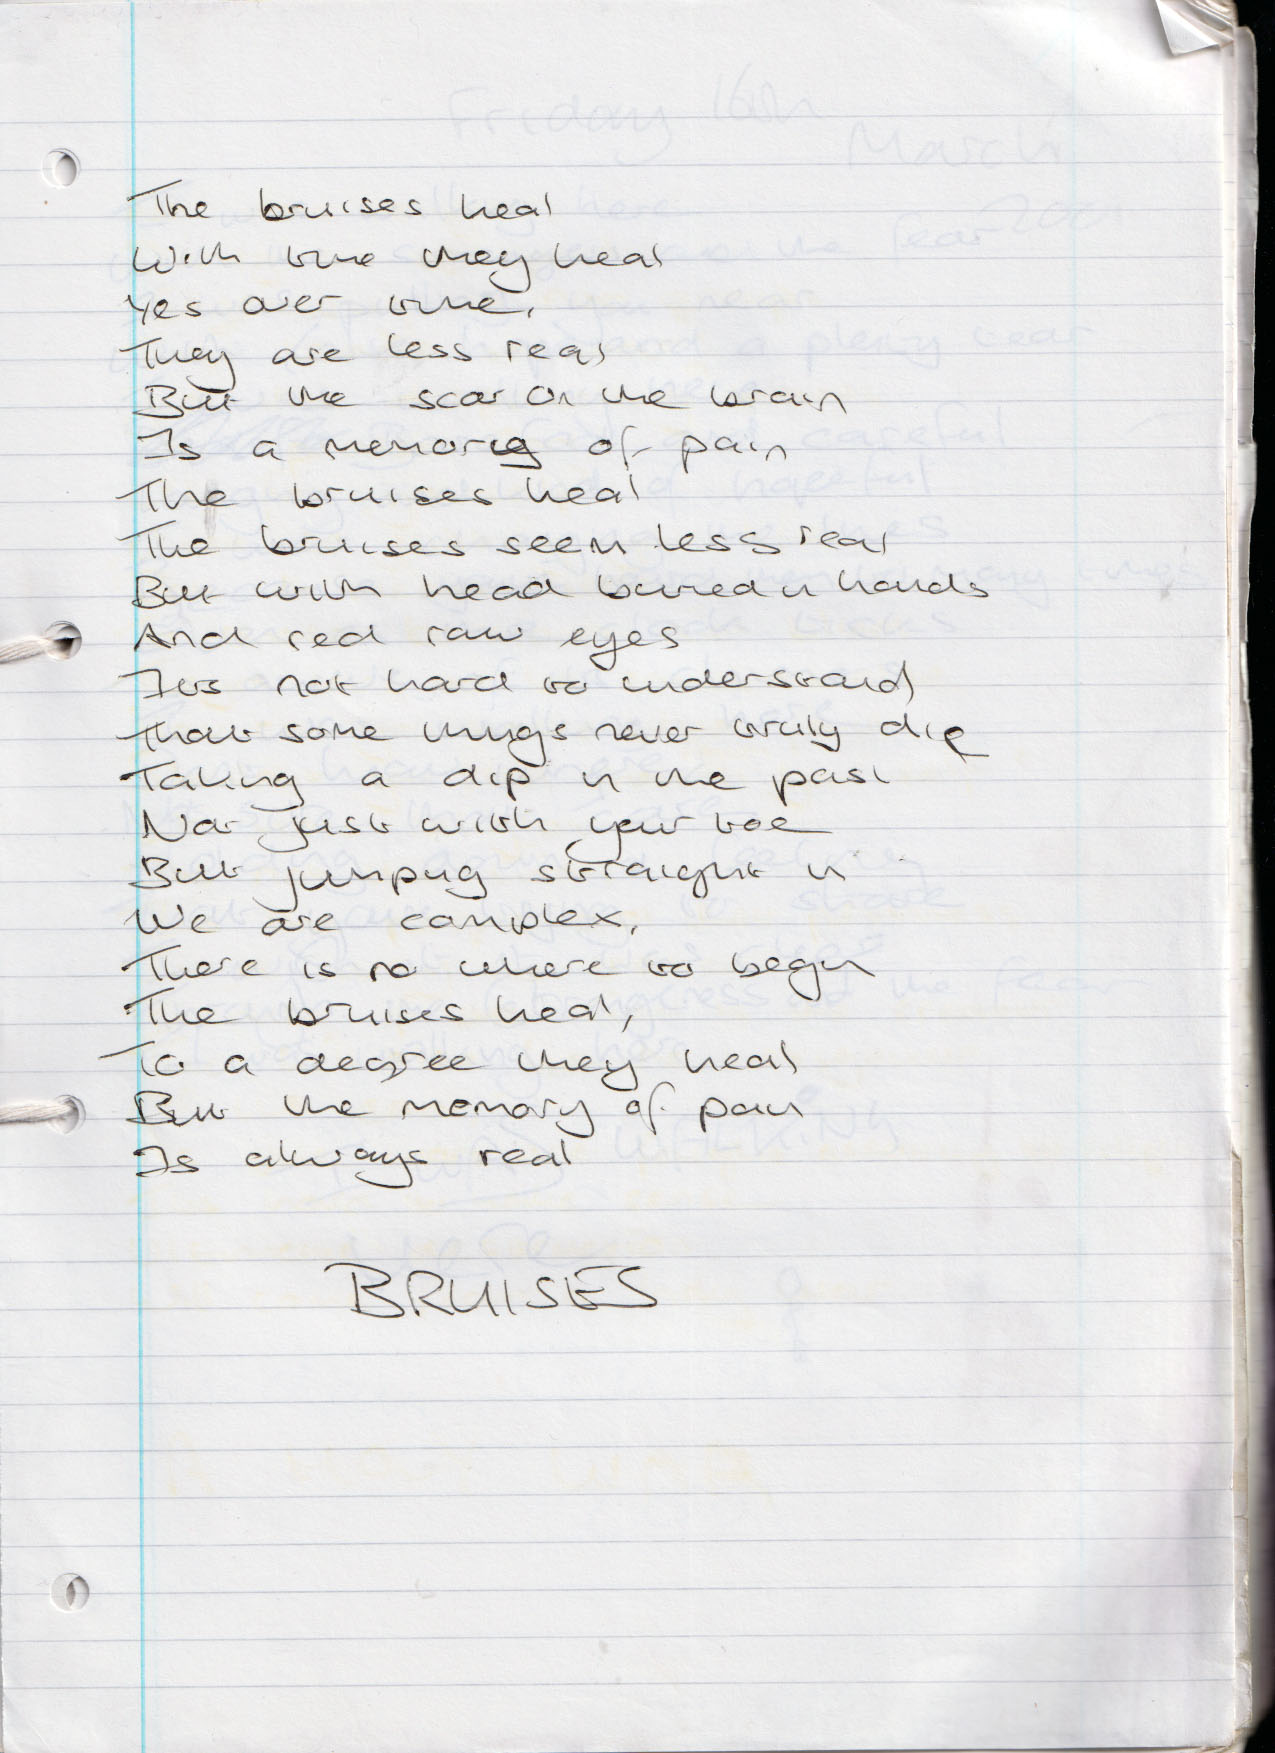 The bruises heal
With time they heal
Yes over time,
They are less real
But the scar on the brain
Is a memory of pain
The bruises heal
The bruises seem less real
But with head buried in hands
And red raw eyes
Its not hard to understand
That some things never truly die
Taking a dip in the past
Not just with your toe
But jumping straight in
We are complex,
There is no where to begin
The bruises heal,
To a degree they heal
But the memory of pain
Is always real
BRUISES